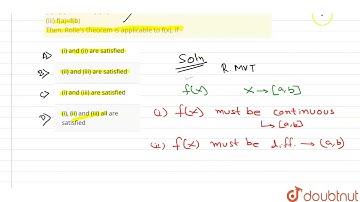 (iii) f(a)=f(b)
Then, Rolle's theorem is applicable to f(x), if -
A) (i) and (ii) are satisfied
B) (ii) and (iii) are satisfied
C) (i) and (iii) are satisfied
D) (i), (ii) and (iii) all are satisfied
Soln
R. MVT
f(x) x → [a,b]
(i) f(x) must be continuous
↳ [a,b]
(ii) f(x) must be diff. → (a,b)
doubtnut